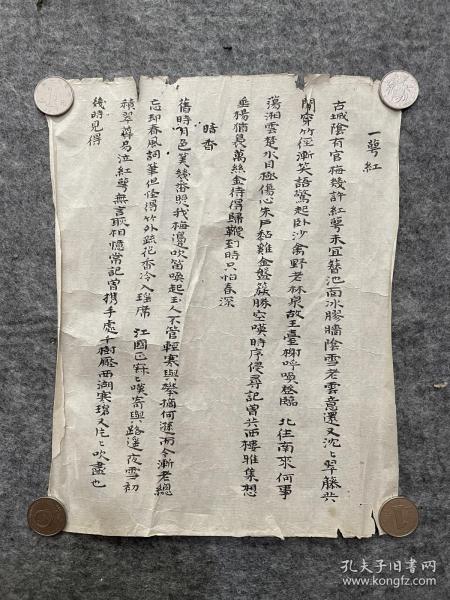 一萼紅
古城陰有官梅幾許紅萼未宜簪池面冰膠牆陰雪老雲意還又沈々翠藤共
閒穿竹徑漸笑語驚起卧沙禽野老林泉故王臺榭呼喚登臨 北往南來何事
蕩湘雲楚水目極傷心朱戶黏雞金盤簇勝空嘆時序侵尋記曾共西樓雅集想
垂楊猶裊萬絲金待得歸鞭到時只怕春深
暗香
舊時月色算幾番照我梅邊吹笛喚起玉人不管輕寒與攀摘何遜而今漸老總
忘却春風詞筆但怪得竹外疏花香冷入瑤席 江國正寂々嘆寄與路遙夜雪初
積翠尊易泣紅萼無言耿相憶常記曾携手處千樹壓西湖寒碧又片々吹盡也
幾時見得
孔夫子旧书网
www.kongfz.com